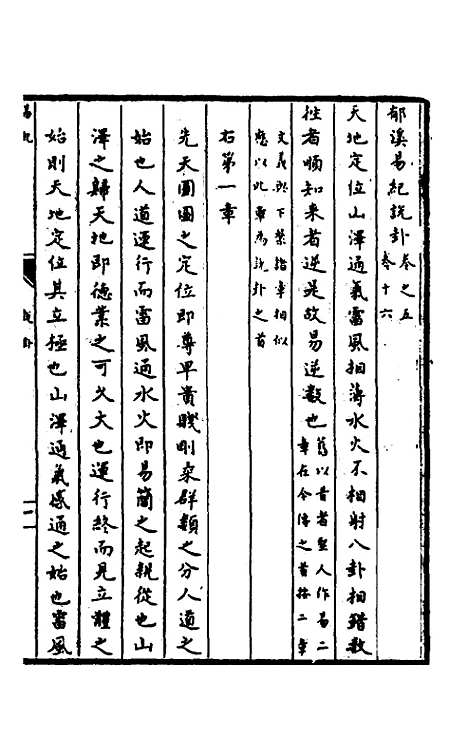 郁溪易紀說卦卷之五
卷十六
天地定位山澤通氣雷風相薄水火不相射八卦相錯数
徃者順知来者逆是故易逆數也舊以昔者聖人作易二
章在今傳之首按二章
文義與下繫諸章相似
應以此章為說卦之首
右第一章
先天圓圖之定位即尊卑貴賤剛柔群類之分人道之
始也人道運行而雷風通水火即易簡之起親從也山
澤之歸天地即德業之可久大也運行終而見立體之
始則天地定位其立極也山澤通氣感通之始也雷風
易紀
說卦
一